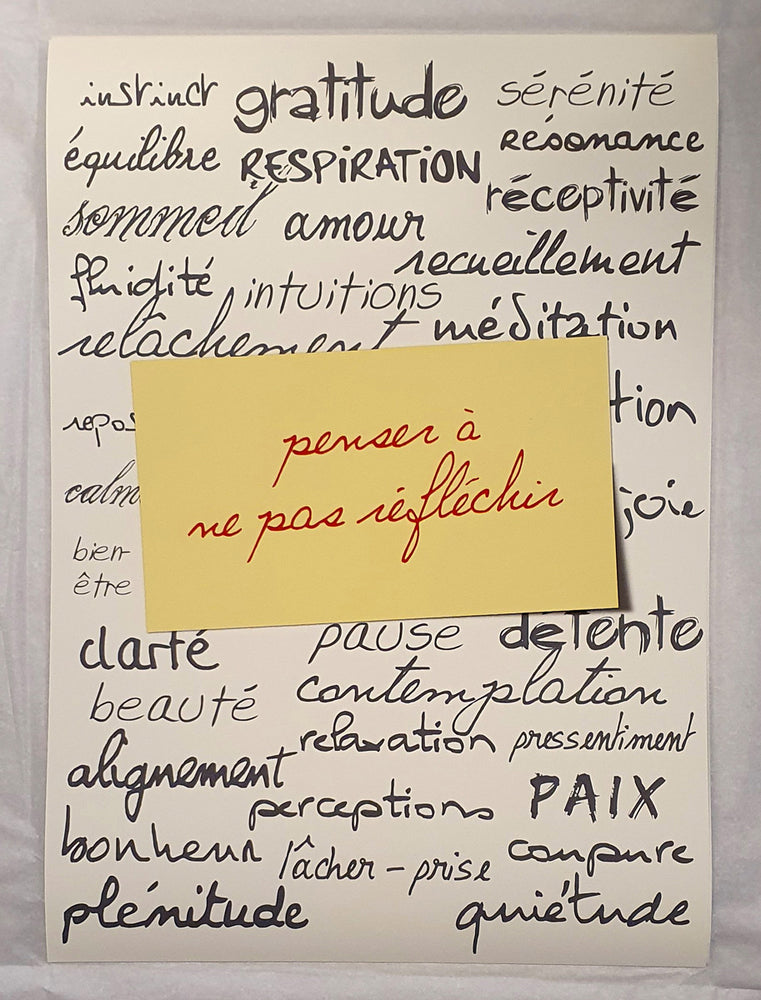 instinct gratitude sérénité
équilibre RESPIRATION Résonance
sommeil amour réceptivité
fluidité intuitions recueillement
relâchement méditation
repos tion
penser à
calm
ne pas réfléchir joie
bien-
être
clarté pause détente
beauté contemplation
alignement relaxation pressentiment
perceptions PAIX
bonheur lâcher-prise coupure
plénitude quiétude